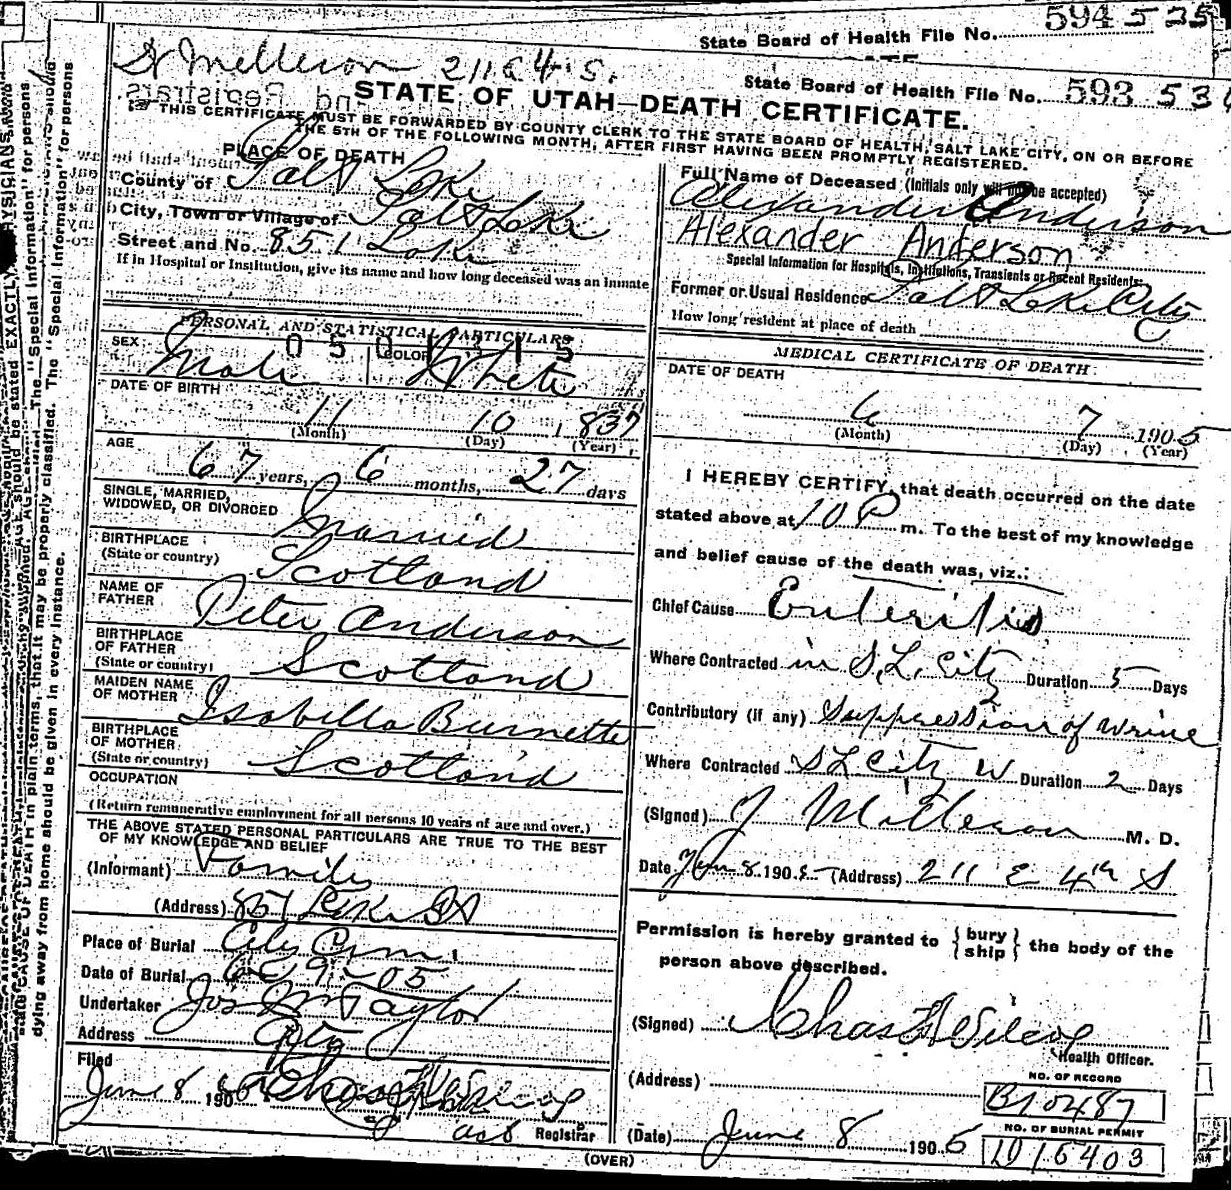 594 535
State Board of Health File No.
State Board of Health File No. 593 531
211 E 4 S.
STATE OF UTAH—DEATH CERTIFICATE.
THIS CERTIFICATE MUST BE FORWARDED BY COUNTY CLERK TO THE STATE BOARD OF HEALTH, SALT LAKE CITY, ON OR BEFORE
THE 5TH OF THE FOLLOWING MONTH, AFTER FIRST HAVING BEEN PROMPTLY REGISTERED.
PLACE OF DEATH
County of Salt Lake
City, Town or Village of Salt Lake
Street and No. 851 Lake
If in Hospital or Institution, give its name and how long deceased was an inmate
PERSONAL AND STATISTICAL PARTICULARS
0501215
SEX Male COLOR White
DATE OF BIRTH
11 10 1837
(Month) (Day) (Year)
AGE
67 years, 6 months, 27 days
SINGLE, MARRIED,
WIDOWED, OR DIVORCED Married
BIRTHPLACE
(State or country) Scotland
NAME OF
FATHER Peter Anderson
BIRTHPLACE
OF FATHER
(State or country) Scotland
MAIDEN NAME
OF MOTHER Isabella Burnette
BIRTHPLACE
OF MOTHER
(State or country) Scotland
OCCUPATION
(Return remunerative employment for all persons 10 years of age and over.)
THE ABOVE STATED PERSONAL PARTICULARS ARE TRUE TO THE BEST
OF MY KNOWLEDGE AND BELIEF
(Informant) Family
(Address) 851 Lake St
Place of Burial City Cem.
Date of Burial 6-9-05
Undertaker Jos Wm Taylor
Address City
Filed
June 8 190
Registrar
Full Name of Deceased (Initials only will not be accepted)
Alexander Anderson
Alexander Anderson
Special Information for Hospitals, Institutions, Transients or Recent Residents:
Former or Usual Residence Salt Lake City
How long resident at place of death
MEDICAL CERTIFICATE OF DEATH
DATE OF DEATH
6 7 1905
(Month) (Day) (Year)
I HEREBY CERTIFY, that death occurred on the date
stated above at 10 P m. To the best of my knowledge
and belief cause of the death was, viz.:
Chief Cause Enteritis
Where Contracted in S.L. City Duration 5 Days
Contributory (if any) Suppression of Urine
Where Contracted S L City Duration 2 Days
(Signed) M. D.
Date 8 1905 (Address) 211 E 4th S
Permission is hereby granted to { bury ship } the body of the
person above described.
(Signed) Chas F Wilcox
Health Officer.
(Address)
NO. OF RECORD
B10487
(Date) June 8 1905
NO. OF BURIAL PERMIT
D 16403
(OVER)
dying away from home should be given in every instance.
state CAUSE OF DEATH in plain terms, that it may be properly classified. The "Special Information" for persons